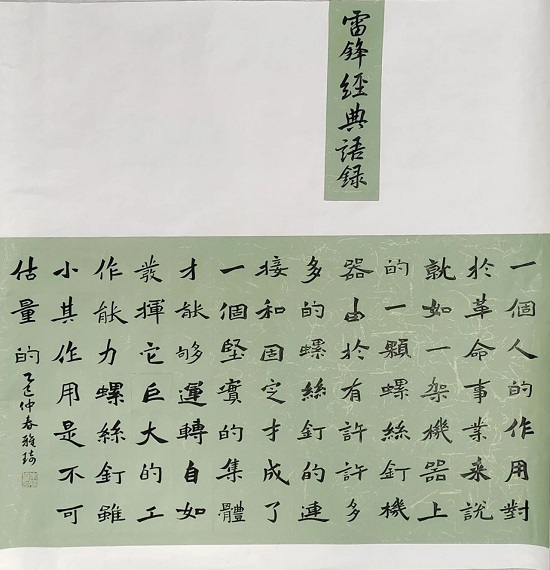 雷鋒經典語録
一個人的作用對
於革命事業来説
就如一架機器上
的一顆螺絲釘機
器由於有許許多
多的螺絲釘的連
接和固定才成了
一個堅實的集體
才能够運轉自如
發揮它巨大的工
作能力螺絲釘雖
小其作用是不可
估量的
乙巳仲春雅琦